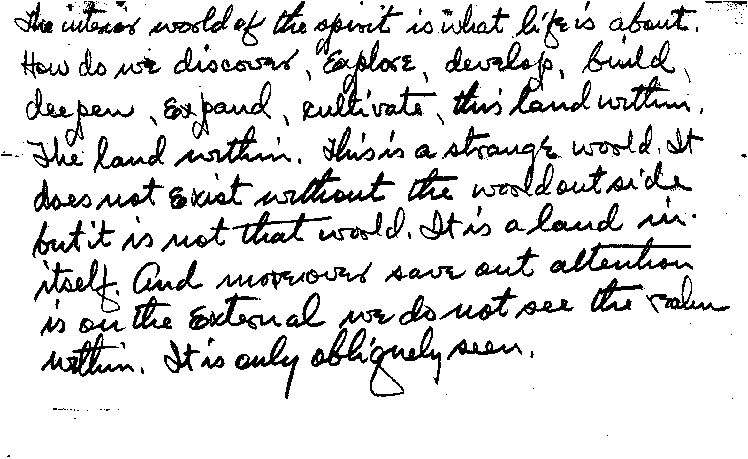 The interior world of the spirit is what life is about.
How do we discover, Explore, develop, build,
deepen, Expand, cultivate, this land within.
The land within. This is a strange world. It
does not Exist without the world outside
but it is not that world. It is a land in
itself. And moreover save out attention
is on the External we do not see the realm
within. It is only obliquely seen.